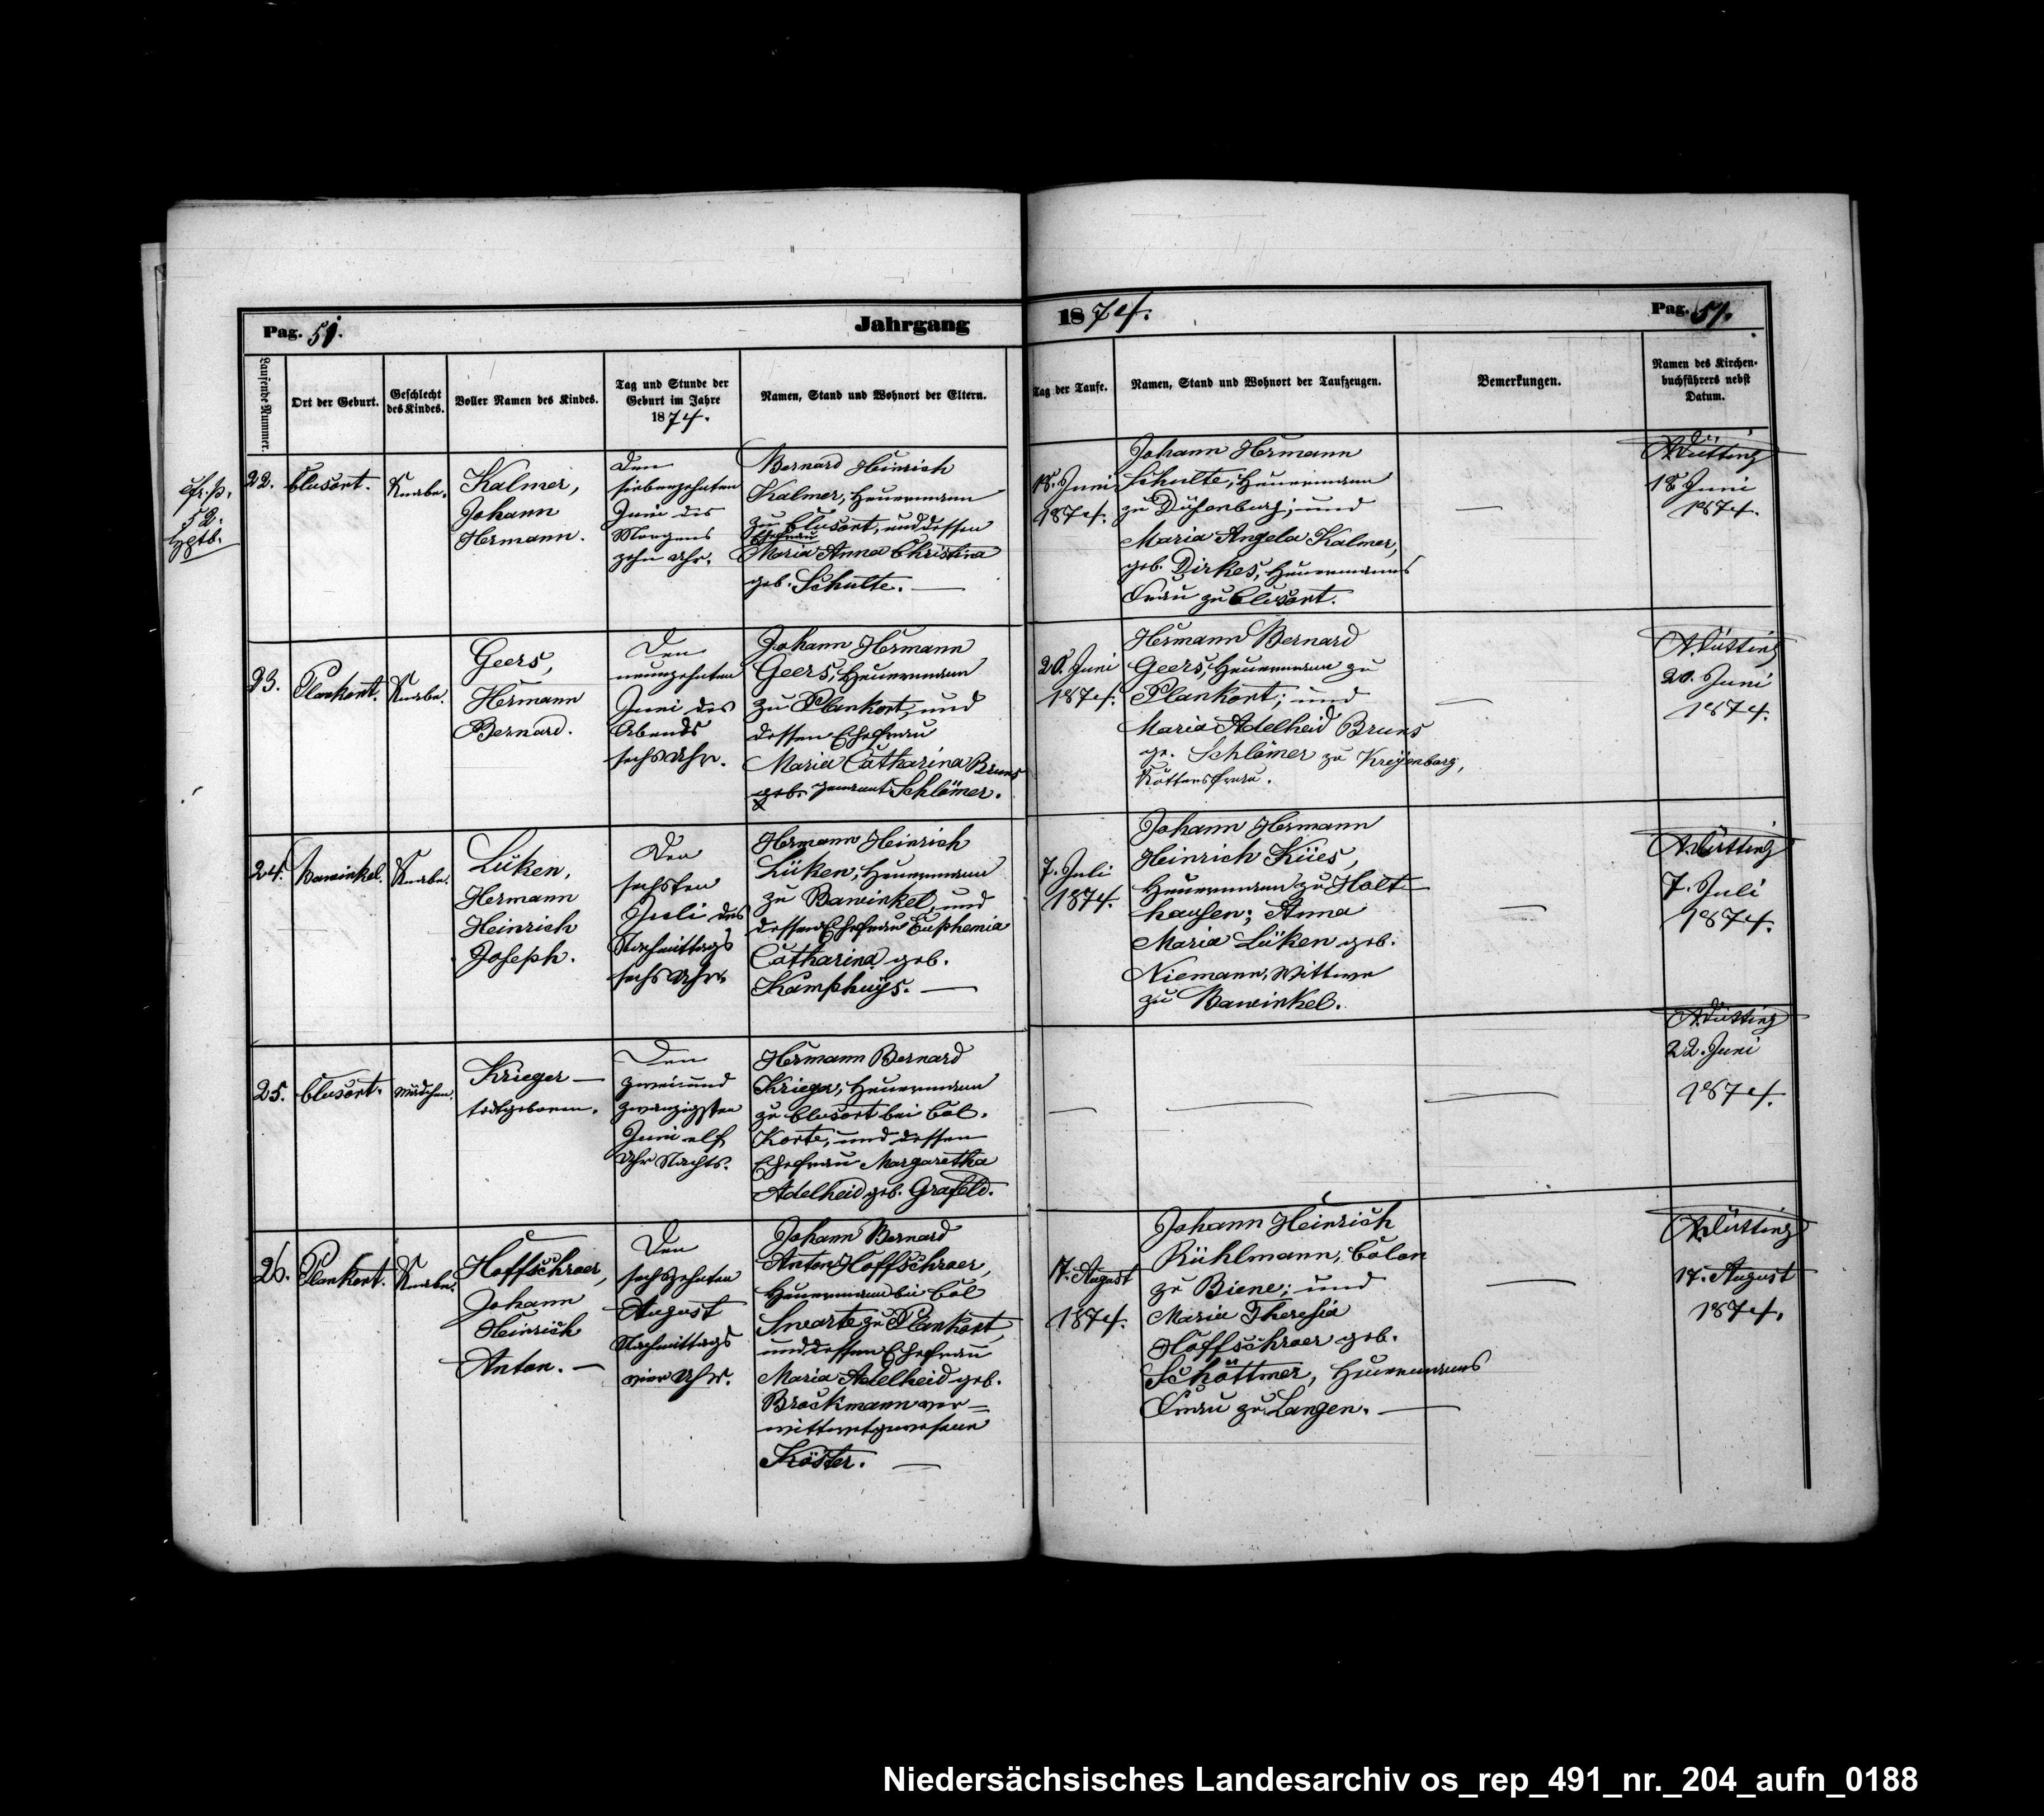 Pag. 51.
Jahrgang
1874.
Pag. 51.
Laufende Nummer.
Ort der Geburt.
Geschlecht
des Kindes.
Voller Namen des Kindes.
Tag und Stunde der
Geburt im Jahre
1874.
Namen, Stand und Wohnort der Eltern.
Tag der Taufe.
Namen, Stand und Wohnort der Taufzeugen.
Bemerkungen.
Namen des Kirchen-
buchführers nebst
Datum.
cfr. p.
52.
22.
Clusort.
Knabe.
Kalmer,
Johann
Hermann.
Den
siebenzehnten
Juni des
Morgens
zehn Uhr.
Bernard Heinrich
Kalmer, Heuermann
zu Clusort, und dessen
Ehefrau
Maria Anna Christina
geb. Schulte. —
18. Juni
1874.
Johann Hermann
Schulte, Heuermann
zu Düsenburg; und
Maria Angela Kalmer,
geb. Dirkes, Heuermanns
Frau zu Clusort.
—
A. Dütting
18 Juni
1874.
23.
Plankort.
Knabe.
Geers,
Hermann
Bernard.
Den
neunzehnten
Juni des
Abends
sechs Uhr.
Johann Hermann
Geers, Heuermann
zu Plankort, und
dessen Ehefrau
Maria Catharina Bruns
geb. genannt Schlömer.
20. Juni
1874.
Hermann Bernard
Geers, Heuermann zu
Plankort; und
Maria Adelheid Bruns
gt. Schlömer zu Kreyenborg,
Köttersfrau.
—
A. Dütting
20. Juni
1874.
24.
Bawinkel.
Knabe.
Lüken,
Hermann
Heinrich
Joseph.
Den
sechsten
Juli des
Nachmittags
sechs Uhr.
Hermann Heinrich
Lüken, Heuermann
zu Bawinkel, und
dessen Ehefrau Euphemia
Catharina geb.
Kamphuys. —
7. Juli
1874.
Johann Hermann
Heinrich Kües,
Heuermann zu Holt-
hausen; Anna
Maria Lüken geb.
Niemann, Wittwe
zu Bawinkel.
—
A. Dütting
7. Juli
1874.
25.
Clusort.
Mädchen.
Krieger —
todtgeboren.
Den
zweiund
zwanzigsten
Juni elf
Uhr Nachts.
Hermann Bernard
Krieger, Heuermann
zu Clusort bei Col.
Korte, und dessen
Ehefrau Margaretha
Adelheid geb. Grafeld.
—
—
—
A. Dütting
22. Juni
1874.
26.
Plankort.
Knabe.
Hoffschroer,
Johann
Heinrich
Anton. —
Den
sechszehnten
August
Nachmittags
vier Uhr.
Johann Bernard
Anton Hoffschroer,
Heuermann bei Col
Swarte zu Plankort,
und dessen Ehefrau
Maria Adelheid geb.
Brockmann ver=
wittwetgewesene
Köster. —
17. August
1874.
Johann Heinrich
Rühlmann, Colon
zu Biene; und
Maria Theresia
Hoffschroer geb.
Schöttmer, Heuermanns
Frau zu Langen. —
—
A. Dütting
17. August
1874.
Niedersächsisches Landesarchiv os_rep_491_nr._204_aufn_0188